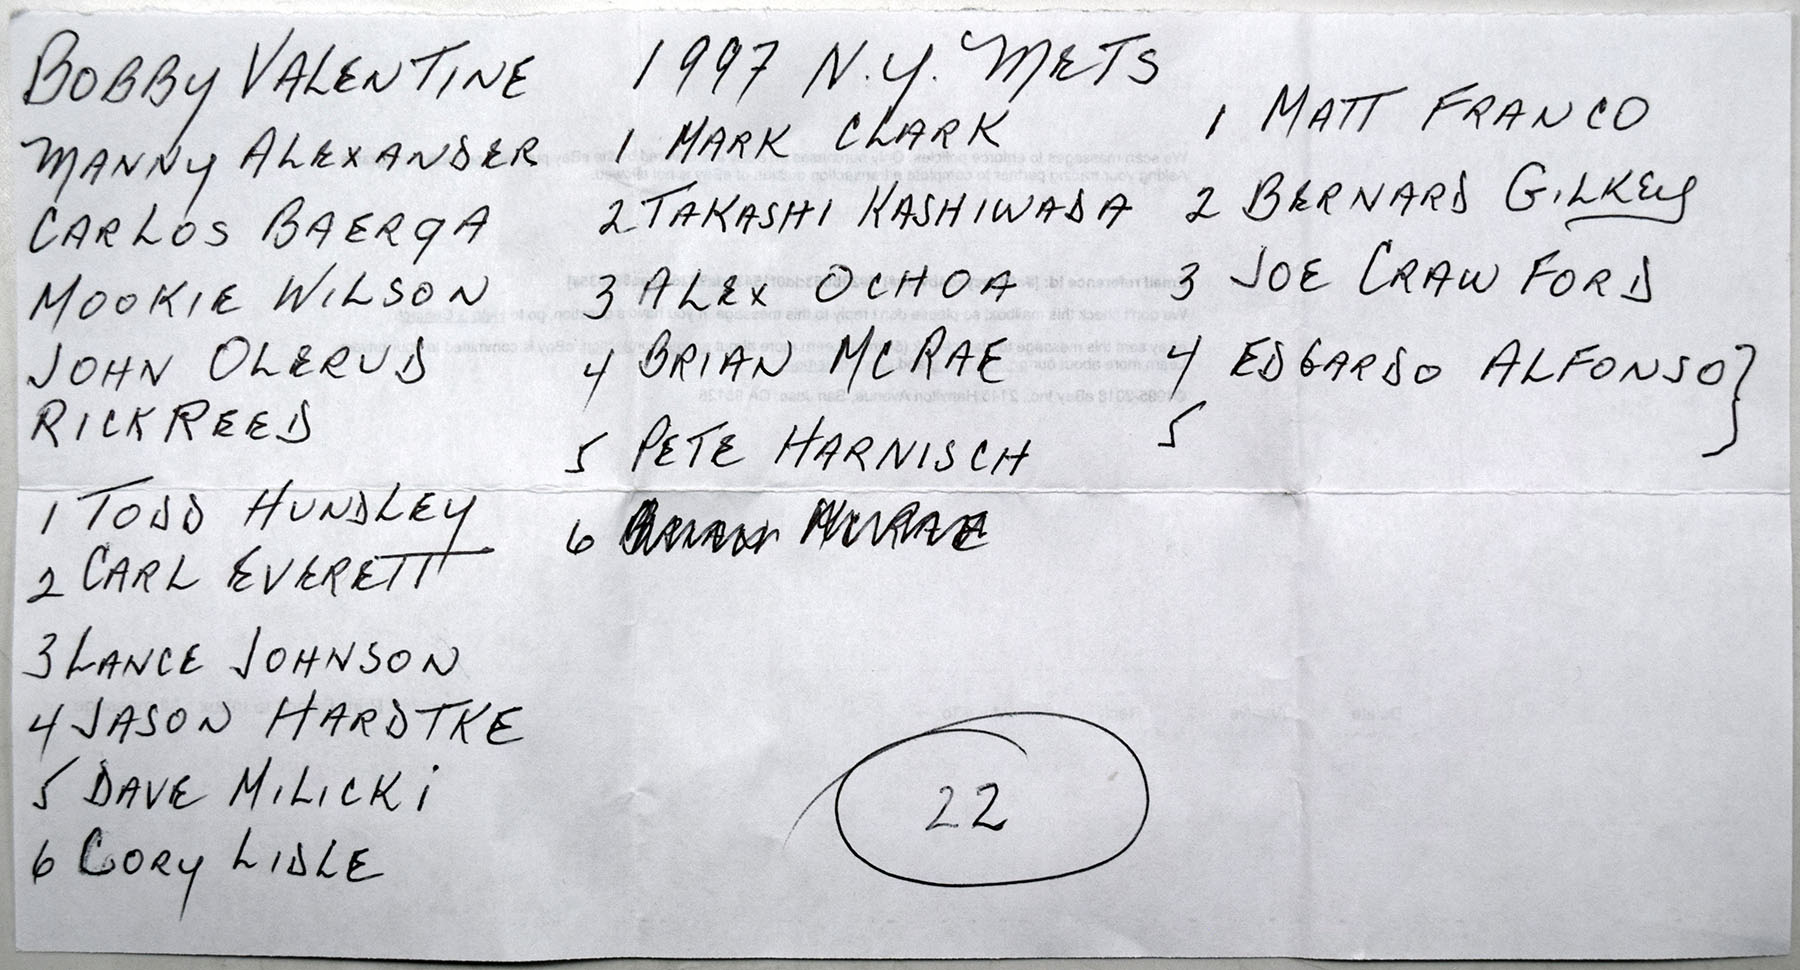 BOBBY VALENTINE
MANNY ALEXANDER
CARLOS BAERGA
MOOKIE WILSON
JOHN OLERUD
RICK REED
1 TODD HUNDLEY
2 CARL EVERETT
3 LANCE JOHNSON
4 JASON HARDTKE
5 DAVE MILICKi
6 CORY LIDLE
1997 N.Y. METS
1 MARK CLARK
2 TAKASHI KASHIWADA
3 ALEX OCHOA
4 BRIAN MCRAE
5 PETE HARNISCH
6
22
1 MATT FRANCO
2 BERNARD GILKEY
3 JOE CRAWFORD
4 EDGARDO ALFONSO}
5